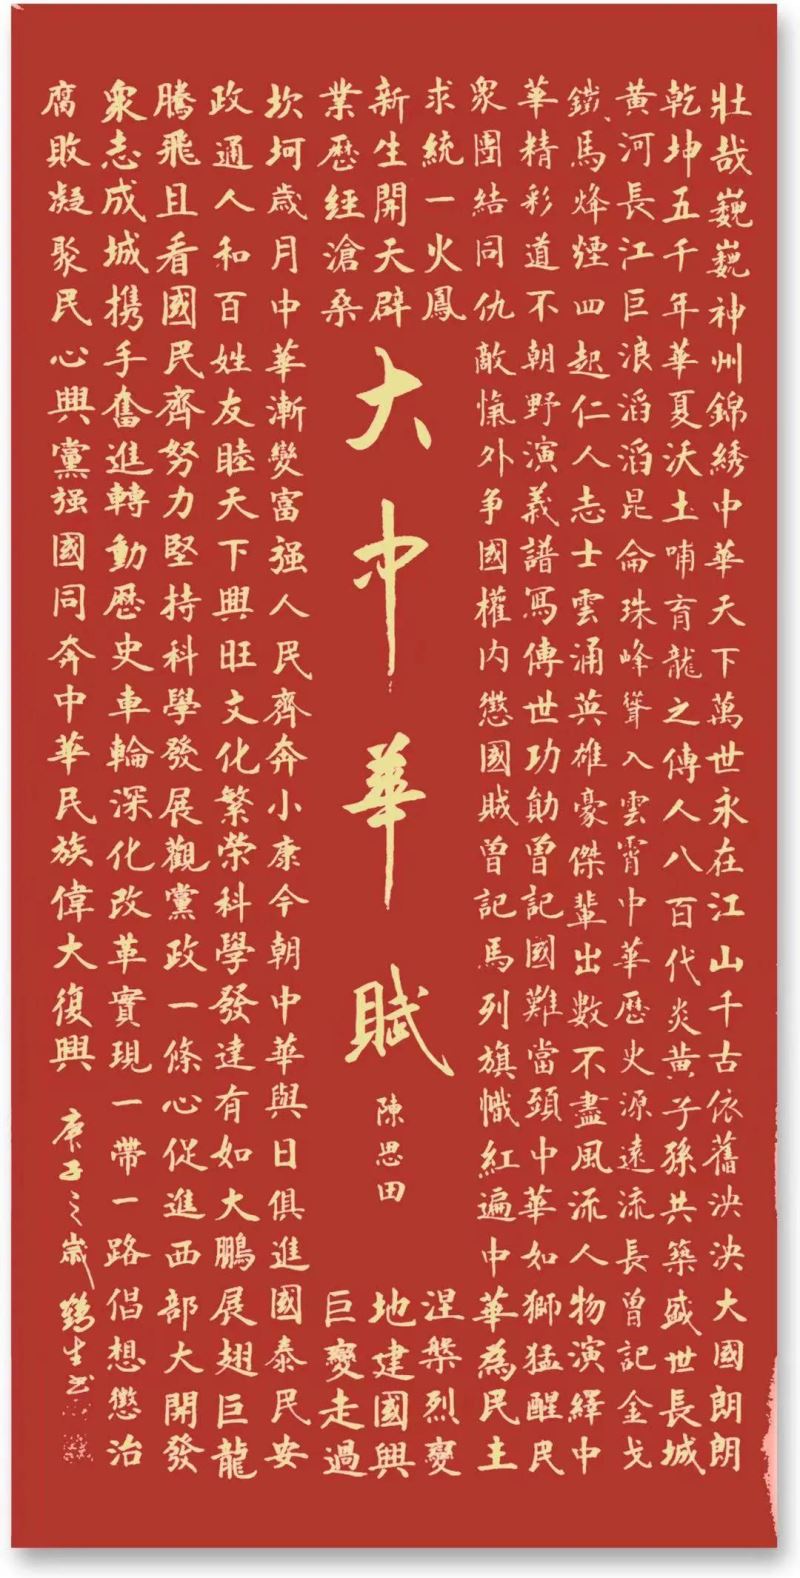 壯哉巍巍神州錦绣中華天下萬世永在江山千古依舊泱泱大國朗朗
乾坤五千年華夏沃土哺育龍之傳人八百代炎黃子孫共築盛世長城
黃河長江巨浪滔滔昆侖珠峰聳入雲霄中華歷史源遠流長曾記金戈
鐵馬烽煙四起仁人志士雲涌英雄豪傑輩出數不盡風流人物演繹中
華精彩道不朝野演義譜寫傳世功勛曾記國難當頭中華如獅猛醒民
衆團結同仇敵愾外争國權内懲國賊曾記馬列旗幟紅遍中華為民主
求統一火鳳涅槃烈變
新生開天辟地建國興
業歷經滄桑巨變走過
大中華賦
陳思田
坎坷歲月中華漸變富强人民齊奔小康今朝中華與日俱進國泰民安
政通人和百姓友睦天下興旺文化繁荣科學發達有如大鵬展翅巨龍
騰飛且看國民齊努力堅持科學發展觀黨政一條心促進西部大開發
衆志成城携手奮進轉動歷史車輪深化改革實現一帶一路倡想懲治
腐敗凝聚民心興黨强國同奔中華民族偉大復興
庚子之歲